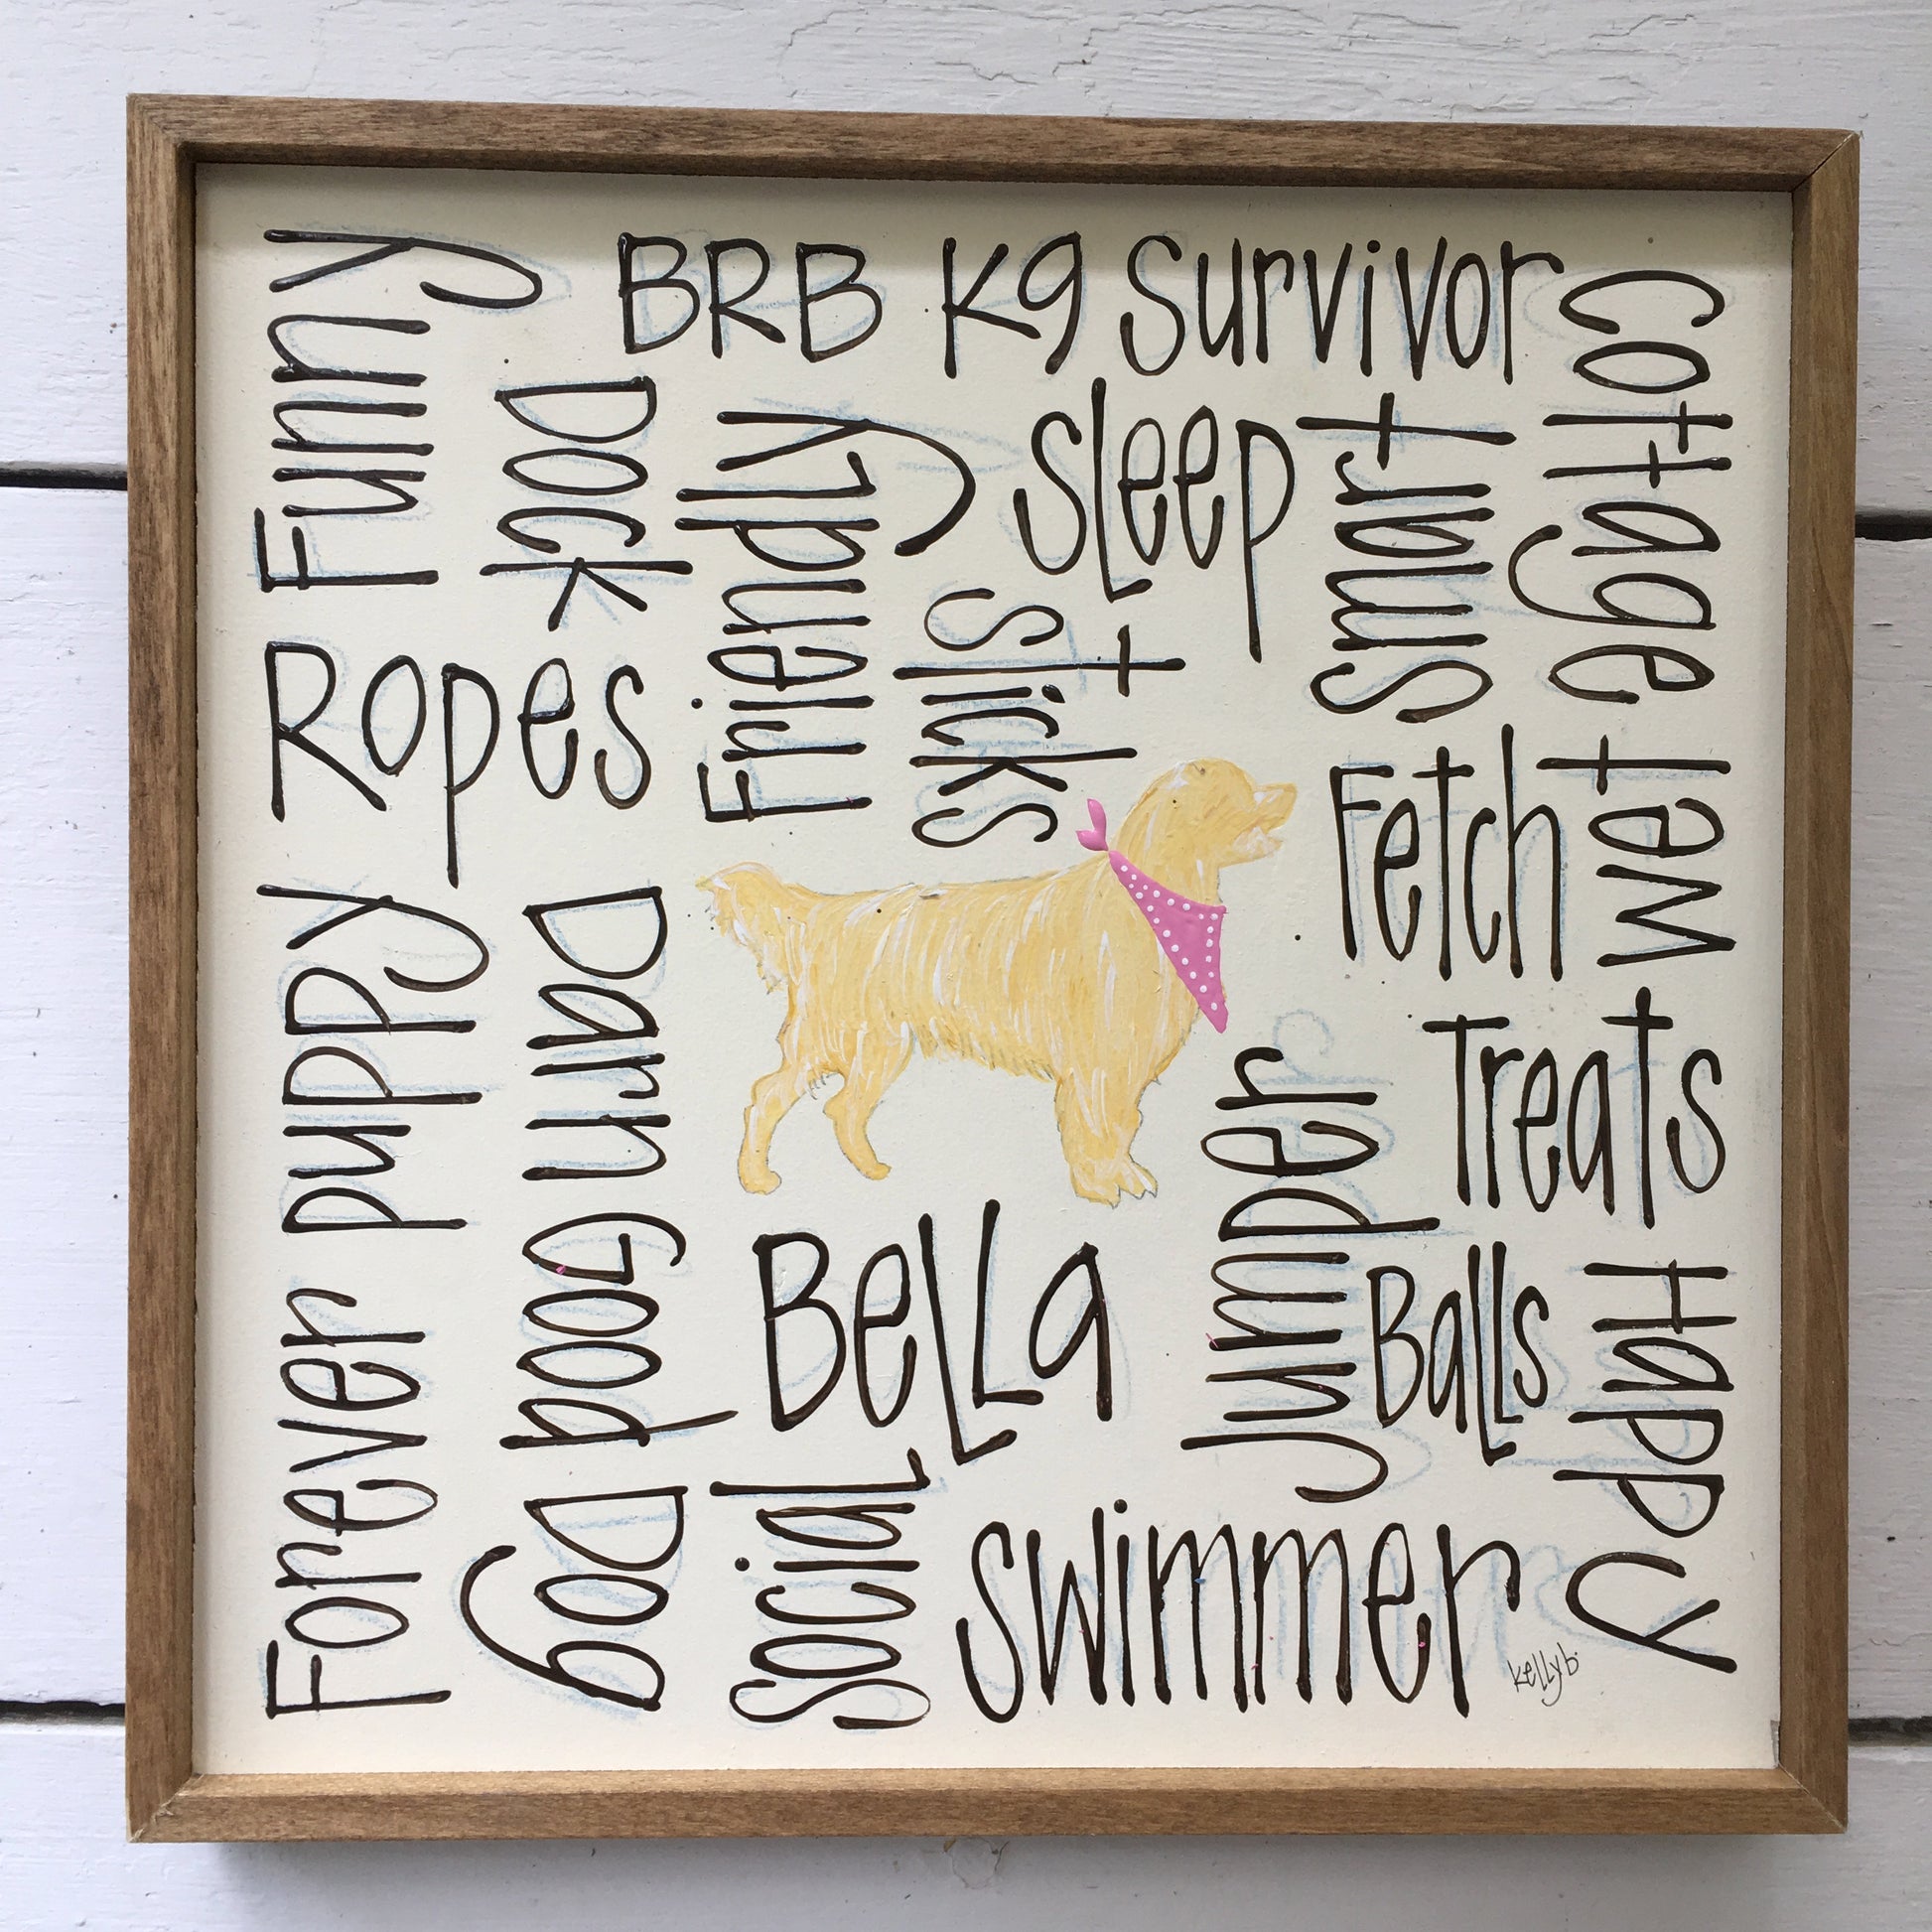 Funny
BRB K9 Survivor
Cottage
Dock
Friendly
Sleep
Smart
Sticks
Ropes
Fetch
Wet
Forever puppy
Darn Good Dog
Treats
Jumper
Bella
Balls
Happy
Social
Swimmer
kellyb.